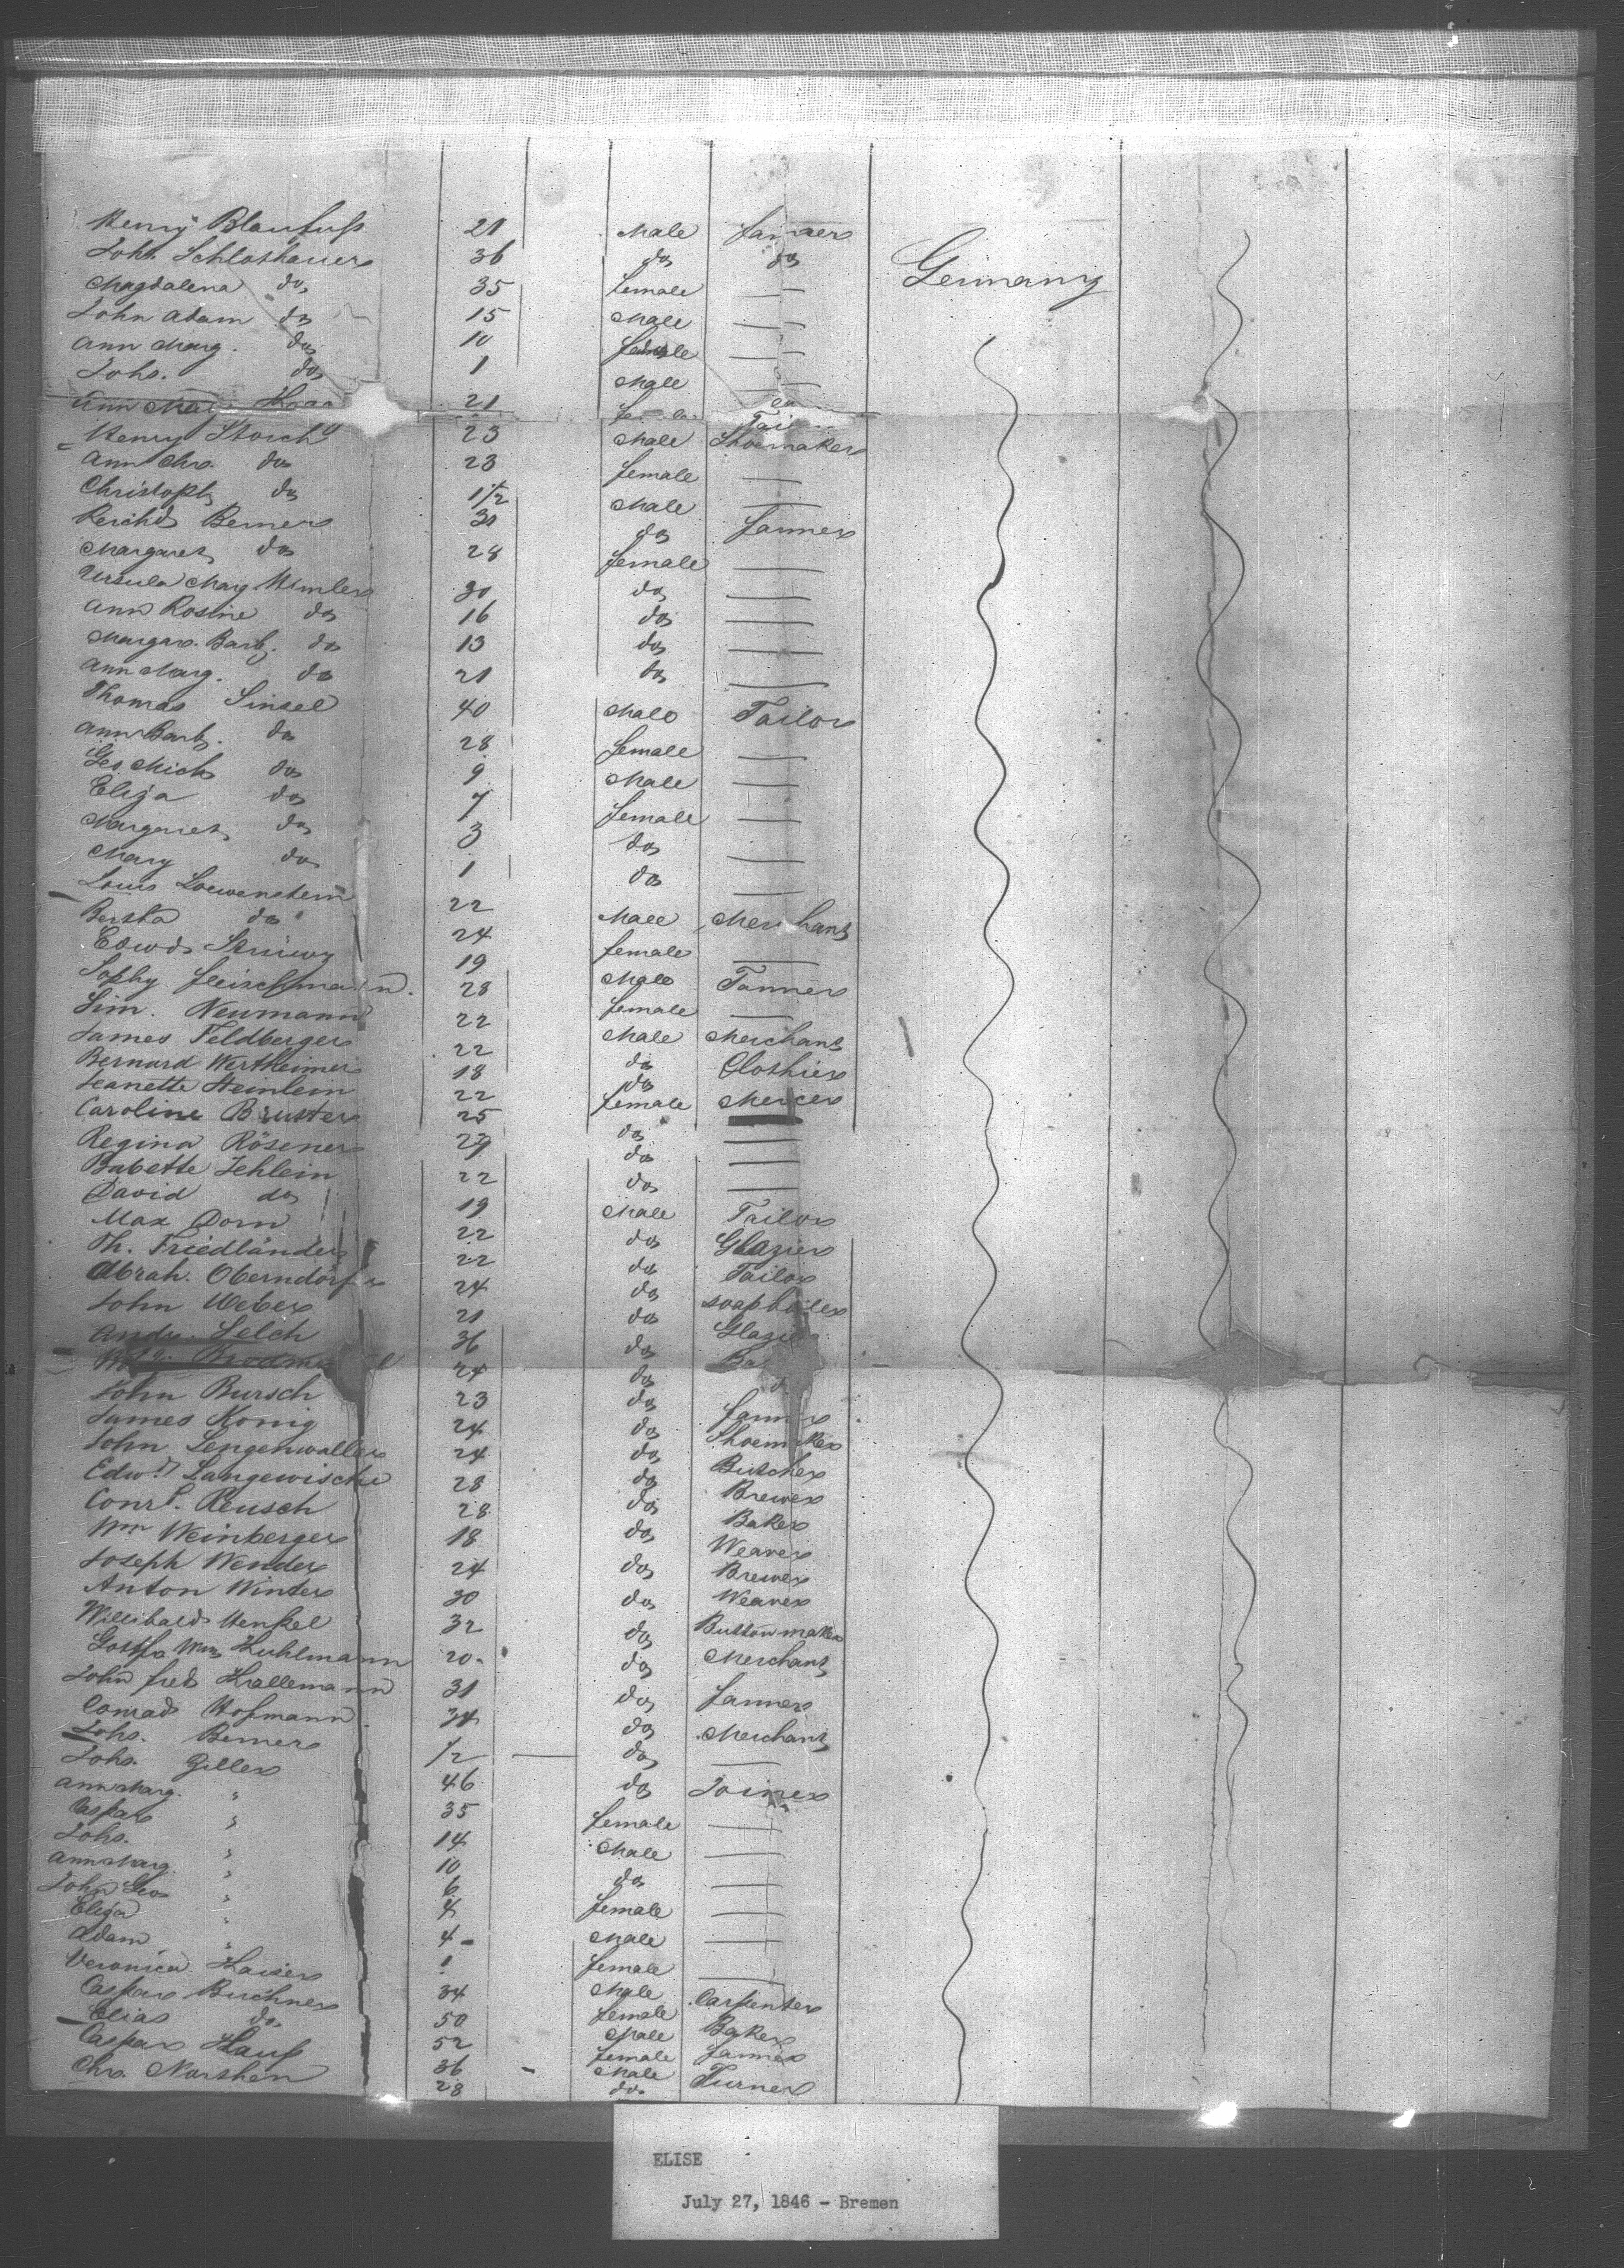 Henry Blaufuss 21 Male farmer Germany
Joh. Schloshauer 36 do do
Magdalena do 35 female —
John Adam do 15 Male —
Ann Marg. do 10 female —
Johs. do 1 Male —
Ann Marg 21
Henry Storch 23 Male Shoemaker
Ann Chr. do 23 female —
Christoph do 1 1/2 Male —
Reichd Berner 31 do farmer
Margaret do 28 female —
Ursula Marg 30 do —
Ann Rosine do 16 do —
Margar. Barb. do 13 do —
Ann Marg. do 21 do —
Thomas Sinsel 40 Male Tailor
Ann Barb. do 28 female —
Geo Mich do 9 Male —
Eliza do 7 female —
Margaret do 3 do —
Mary do 1 do —
Louis Loewenstein 22 Male Merchant
Bertha do 24 female —
Edwd. 19 Male Tanner
Sophy Fleischmann. 28 female —
Sim. Neumann 22 Male Merchant
James Feldberger 22 do Clothier
Bernard Wertheimer 18 do Mercer
Jeanette Steinlein 22 female
Caroline Bruster 25 do —
Regina Rösener 29 do —
Babette Zehlein 22 do —
David do 19 Male Tailor
Max Dorn 22 do Glazier
Th. Friedländer 22 do Tailor
Abrah. Oberndörfer 24 do soapboiler
John Weber 21 do Glazier
Andr. Selch 36 do
24 do
John Bursch 23 do farmer
James König 24 do Shoemaker
John Lengenwaller 24 do Butcher
Edwd Langewische 28 do Brewer
Conrd. Reusch 28 do Baker
Wm Weinberger 18 do Weaver
Joseph Wender 24 do Brewer
Anton Winter 30 do Weaver
Willibald Henkel 32 do Button maker
Wm Kuhlmann 20 do Merchant
John fred Hallemann 31 do farmer
Conrad Hofmann 34 do Merchant
Johs. Berner 1/2 — do —
Johs. Giller 46 do Joiner
Ann Marg. " 35 female —
Caspar " 14 Male —
Johs. " 10 do —
Ann Marg. " 6 female —
John Geo " 4 Male —
Eliza " 4 female —
Adam " 1 Male
Veronica Kaiser 34 female
Caspar Buchner 50 Male Carpenter
Elias do 52 female Baker
Caspar Hauss 36 Male farmer
Chr. Narshen 28 do Turner
ELISE
July 27, 1846 - Bremen